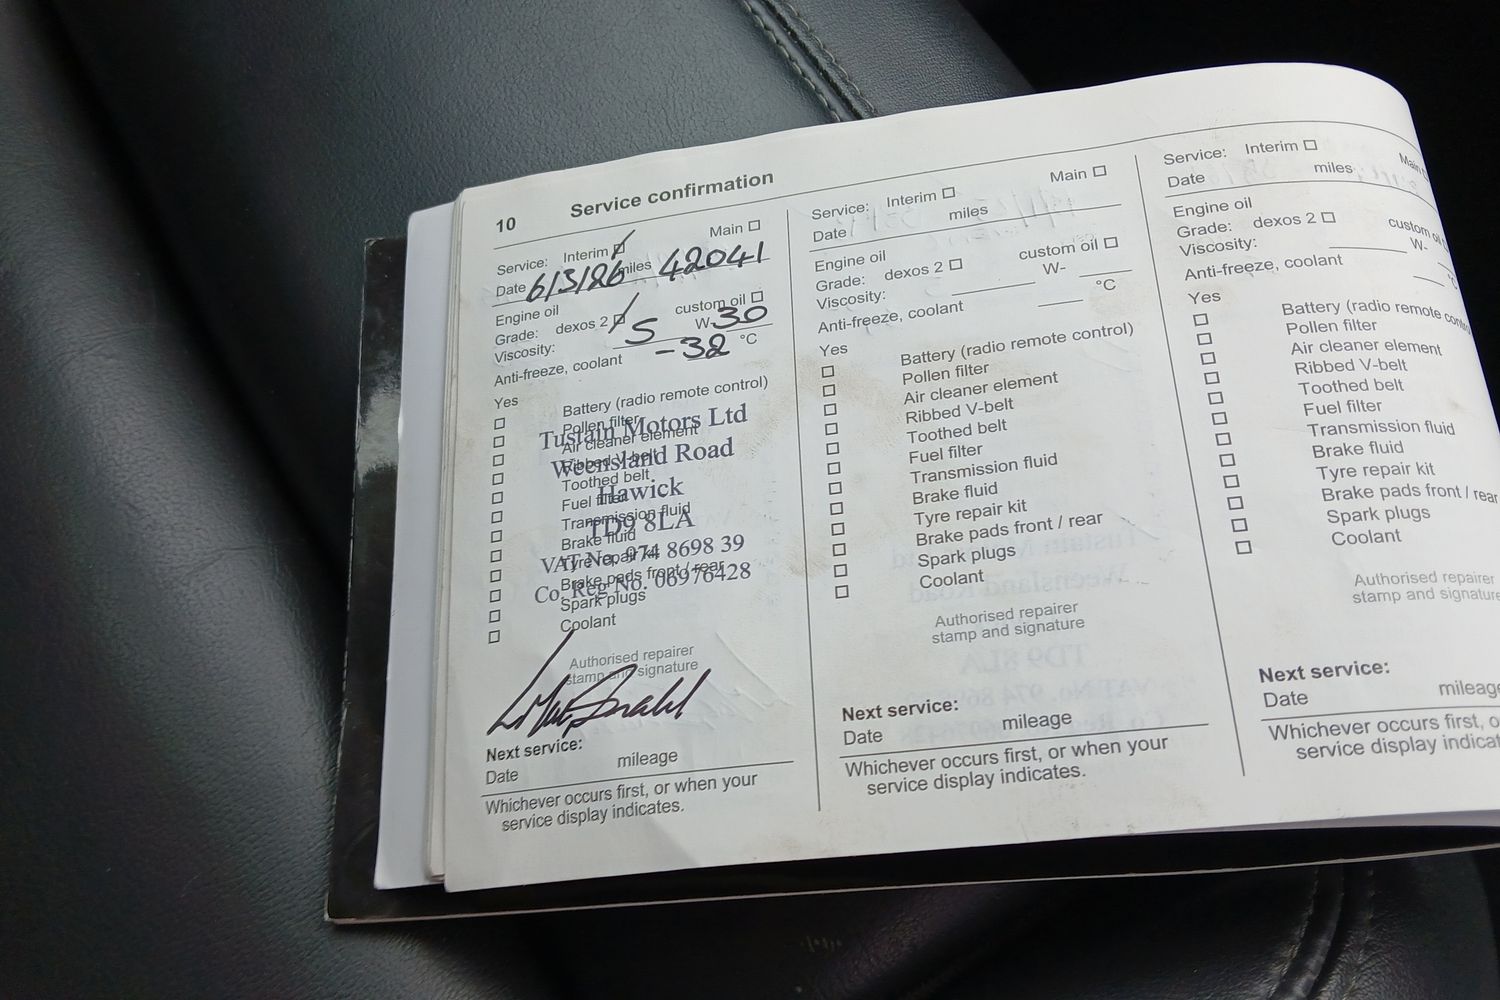 10 Service confirmation
Service: Interim Main
Date 6/3/26 miles 42041
Engine oil
Grade: dexos 2 custom oil
Viscosity: 5 W-30
Anti-freeze, coolant -32 °C
Yes
Battery (radio remote control)
Pollen filter
Air cleaner element
Ribbed V-belt
Toothed belt
Fuel filter
Transmission fluid
Brake fluid
Tyre repair kit
Brake pads front / rear
Spark plugs
Coolant
Tustain Motors Ltd
Weensland Road
Hawick
TD9 8LA
VAT No. 974 8698 39
Co. Reg No. 06976428
Authorised repairer
stamp and signature
Next service:
Date mileage
Whichever occurs first, or when your
service display indicates.
Service: Interim Main
Date miles
Engine oil
Grade: dexos 2 custom oil
Viscosity: W-
Anti-freeze, coolant °C
Yes
Battery (radio remote control)
Pollen filter
Air cleaner element
Ribbed V-belt
Toothed belt
Fuel filter
Transmission fluid
Brake fluid
Tyre repair kit
Brake pads front / rear
Spark plugs
Coolant
Authorised repairer
stamp and signature
Next service:
Date mileage
Whichever occurs first, or when your
service display indicates.
Service: Interim Main
Date miles
Engine oil
Grade: dexos 2 custom oil
Viscosity: W-
Anti-freeze, coolant °C
Yes
Battery (radio remote
Pollen filter
Air cleaner element
Ribbed V-belt
Toothed belt
Fuel filter
Transmission fluid
Brake fluid
Tyre repair kit
Brake pads front / rear
Spark plugs
Coolant
Authorised repairer
stamp and signature
Next service:
Date mileage
Whichever occurs first,
service display